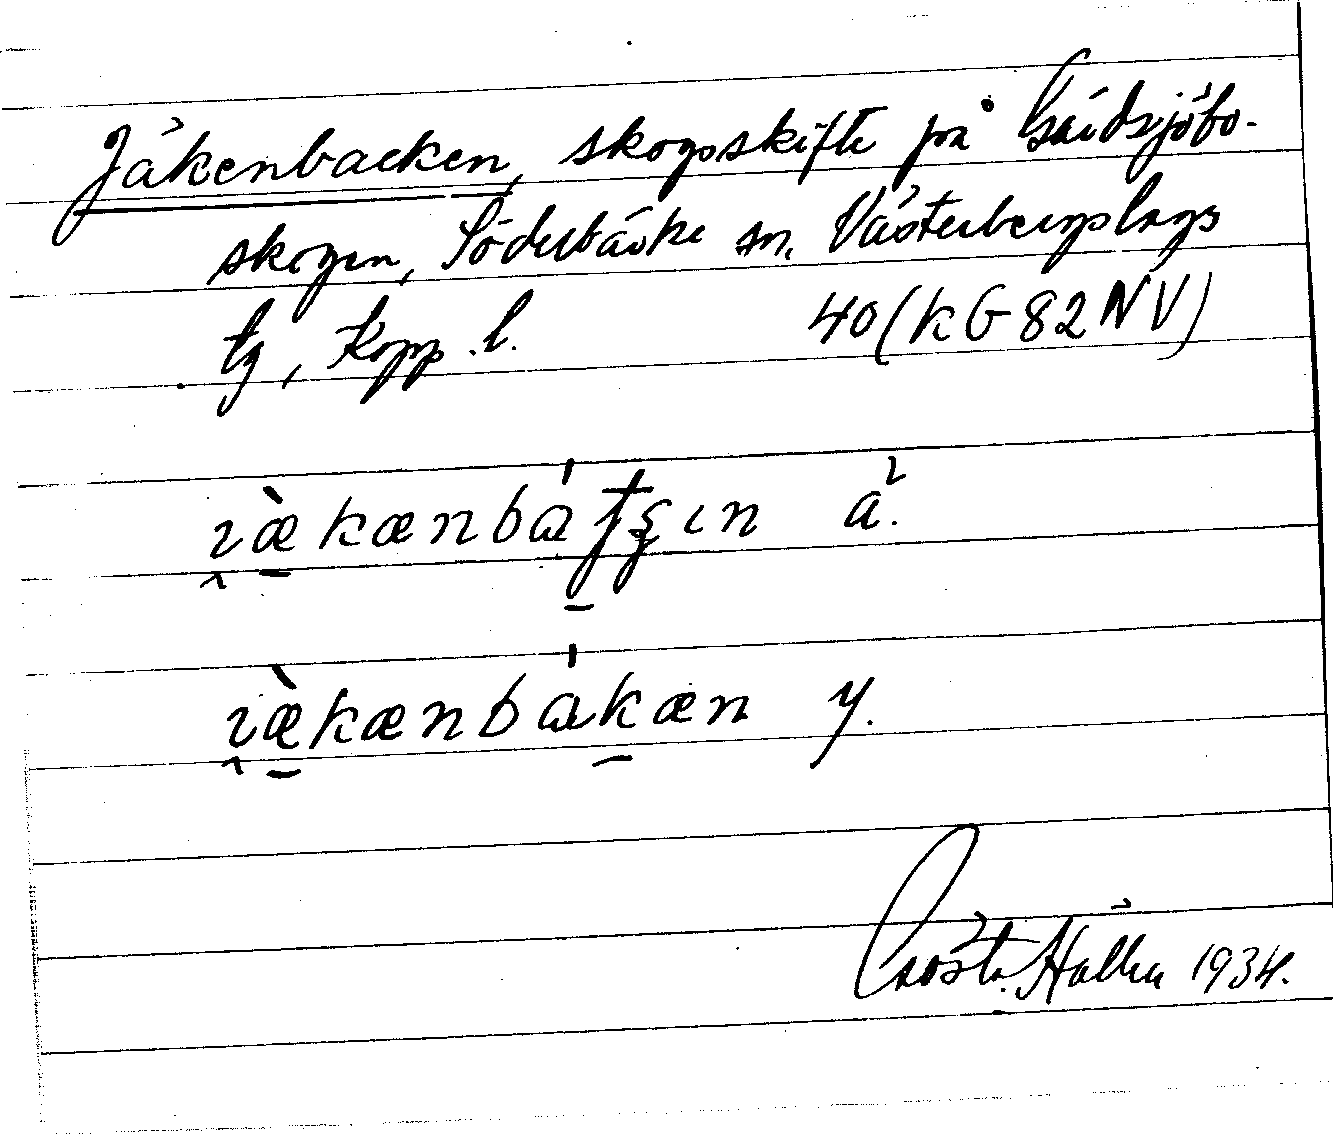 Jäkenbacken, skogsskifte på Gårdsjöbo-
skogen, Söderbärke sn, Västerbergslags
tg, Kopp. l. 40 (KG 82 NV)
ı̯æ̀kænbát̠ʂın ä.
ı̯æ̀kænbákæn y.
Gösta Hallen 1934.